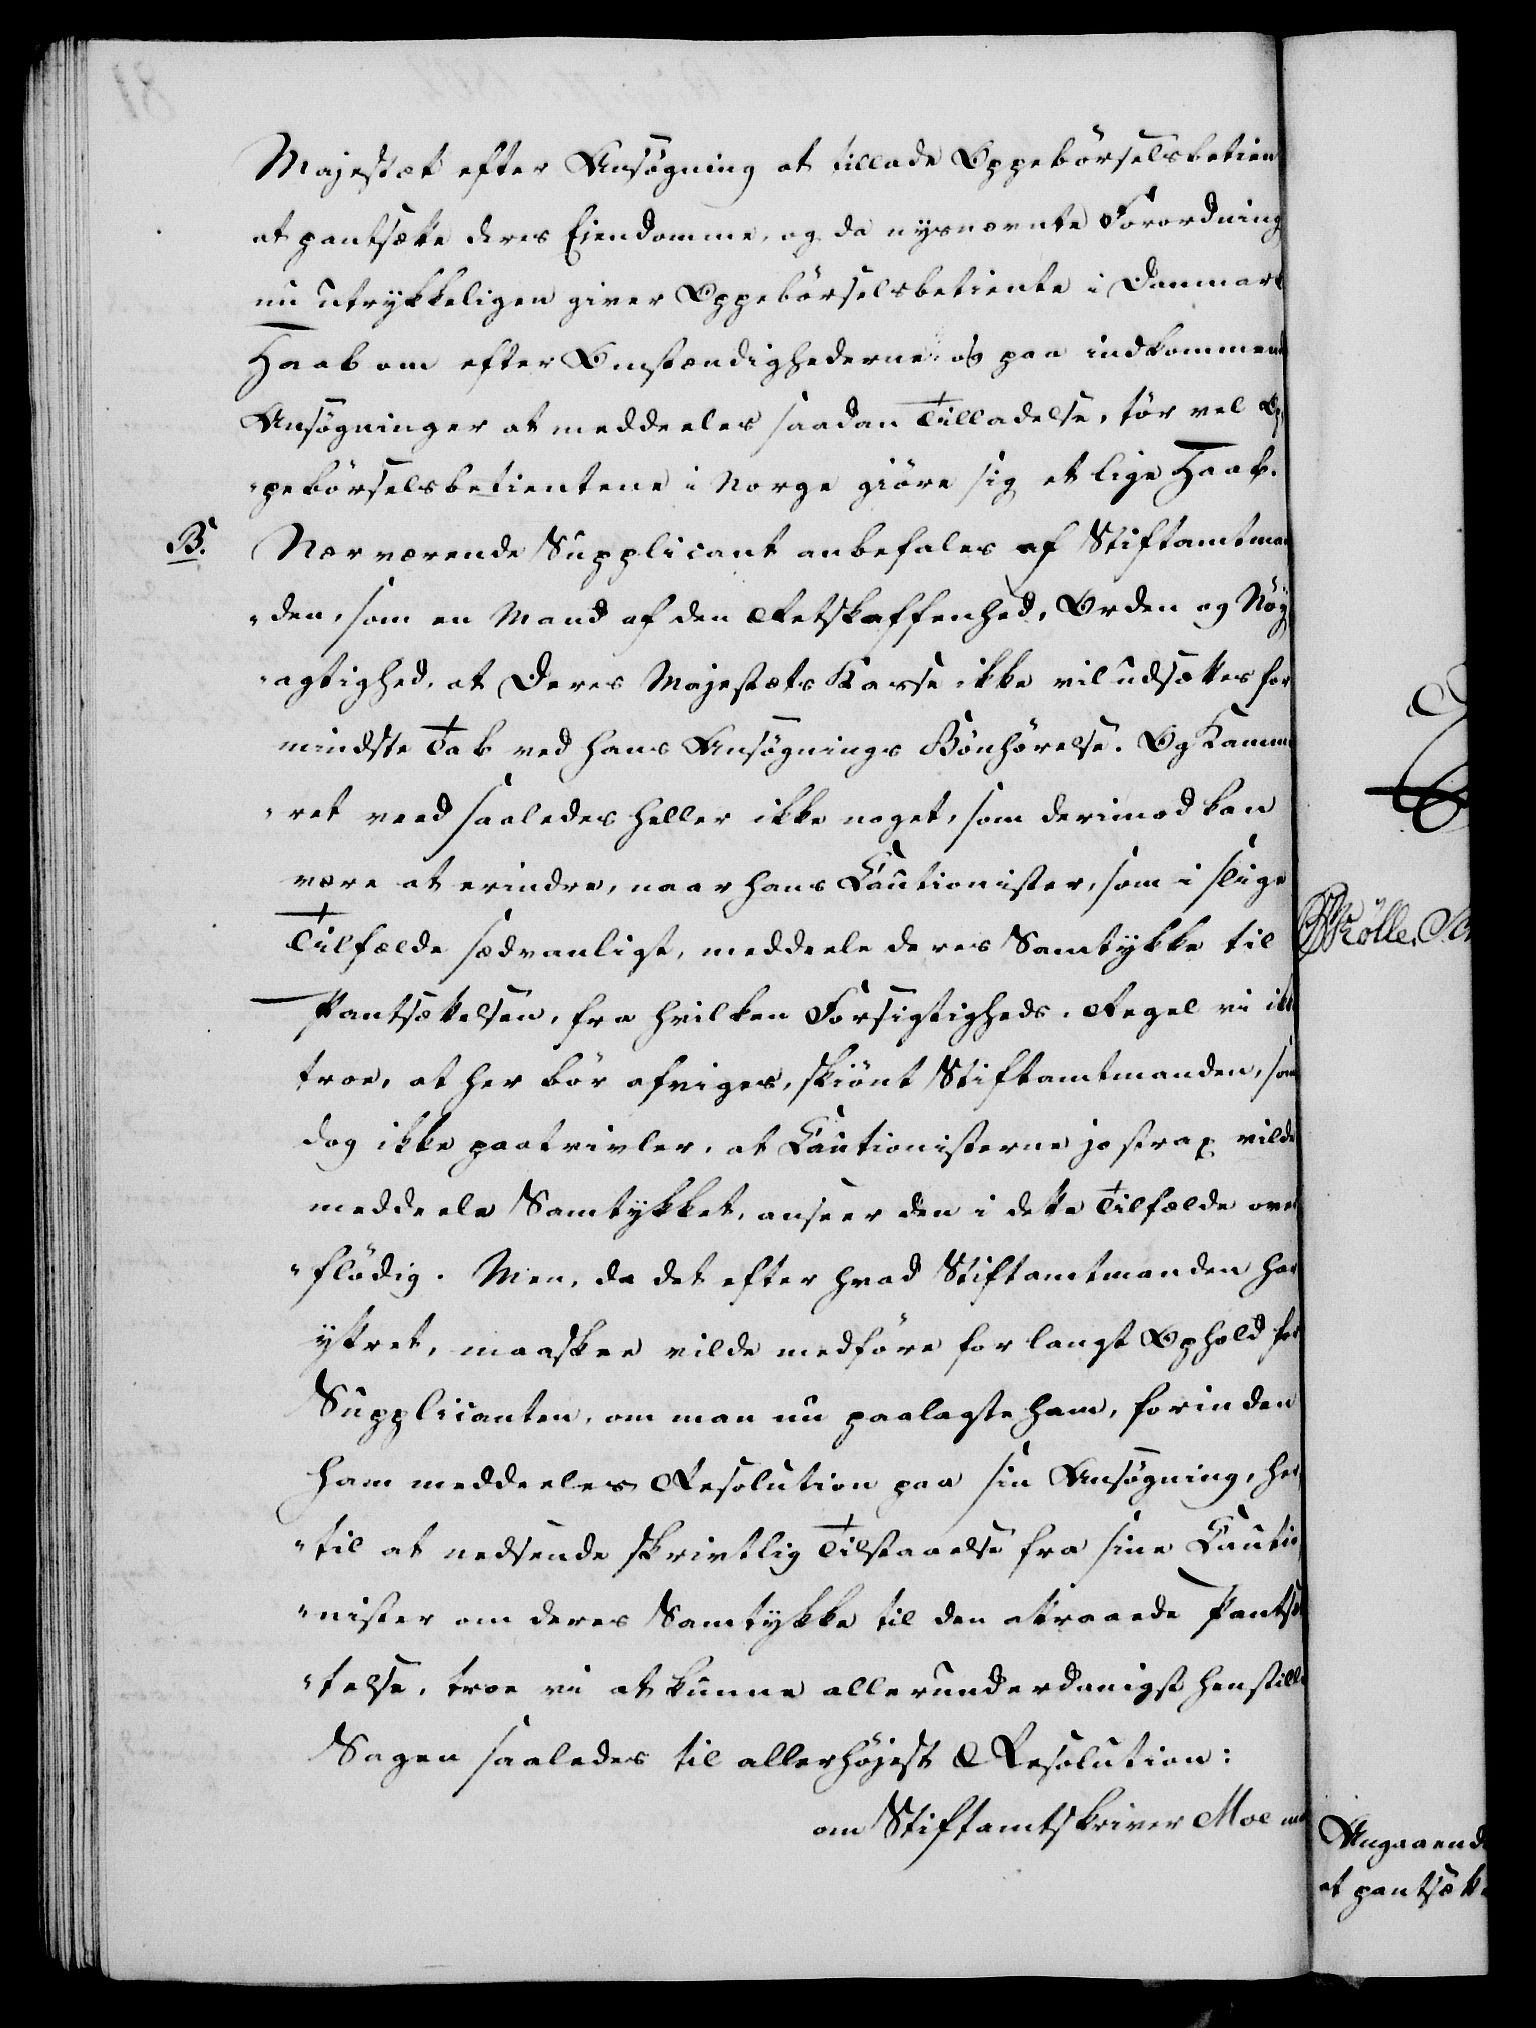 Majestæt efter Ansøgning at tillade Oppebörselsbetien
at pantsætte deres Eiendomme, og da nysnævnte Forordning
nu udtrykkeligen giver Oppebörselsbetiente i Danmark
Haab om efter Omstændighederne og paa indkommende
Ansøgninger at meddeeles saadan Tilladelse, tör vel Op
"pebörselsbetientene i Norge giöre sig et lige Haab.
B. Nærværende Supplicant anbefales af Stiftamtman
"den, som en Mand af den Retskaffenhed, Orden og Nöj
"agtighed, at Deres Majestæts Kasse ikke vil udsættes for
mindste Tab ved hans Ansøgnings Bönhörelse. Og Kamme
"ret veed saaledes heller ikke noget, som derimod kan
være at erindre, naar hans Cautionister, som i slige
Tilfælde sædvanligt, meddeele deres Samtykke til
Pantsættelsen, fra hvilken Forsigtigheds-Regel vi ikke
troe, at her bör afviges, skiönt Stiftamtmanden, som
dog ikke paatvivler, at Cautionisterne jo strax vilde
meddeele Samtykket, anseer den i dette Tilfælde over
"flödig. Men, da det efter hvad Stiftamtmanden har
yttret, maaskee vilde medföre for langt Ophold for
Supplicanten, om man nu paalagte ham, forinden
ham meddeeles Resolution paa sin Ansøgning, her
"til at nedsende skrivtlig Tilstaaelse fra sine Cautio
"nister om deres Samtykke til den attraaede Pantsæt
"telse, troe vi at kunne allerunderdanigst henstille
Sagen saaledes til allerhöjest Resolution:
om Stiftamtskriver Moe maa
Kölle
Angaaende
at pantsætte